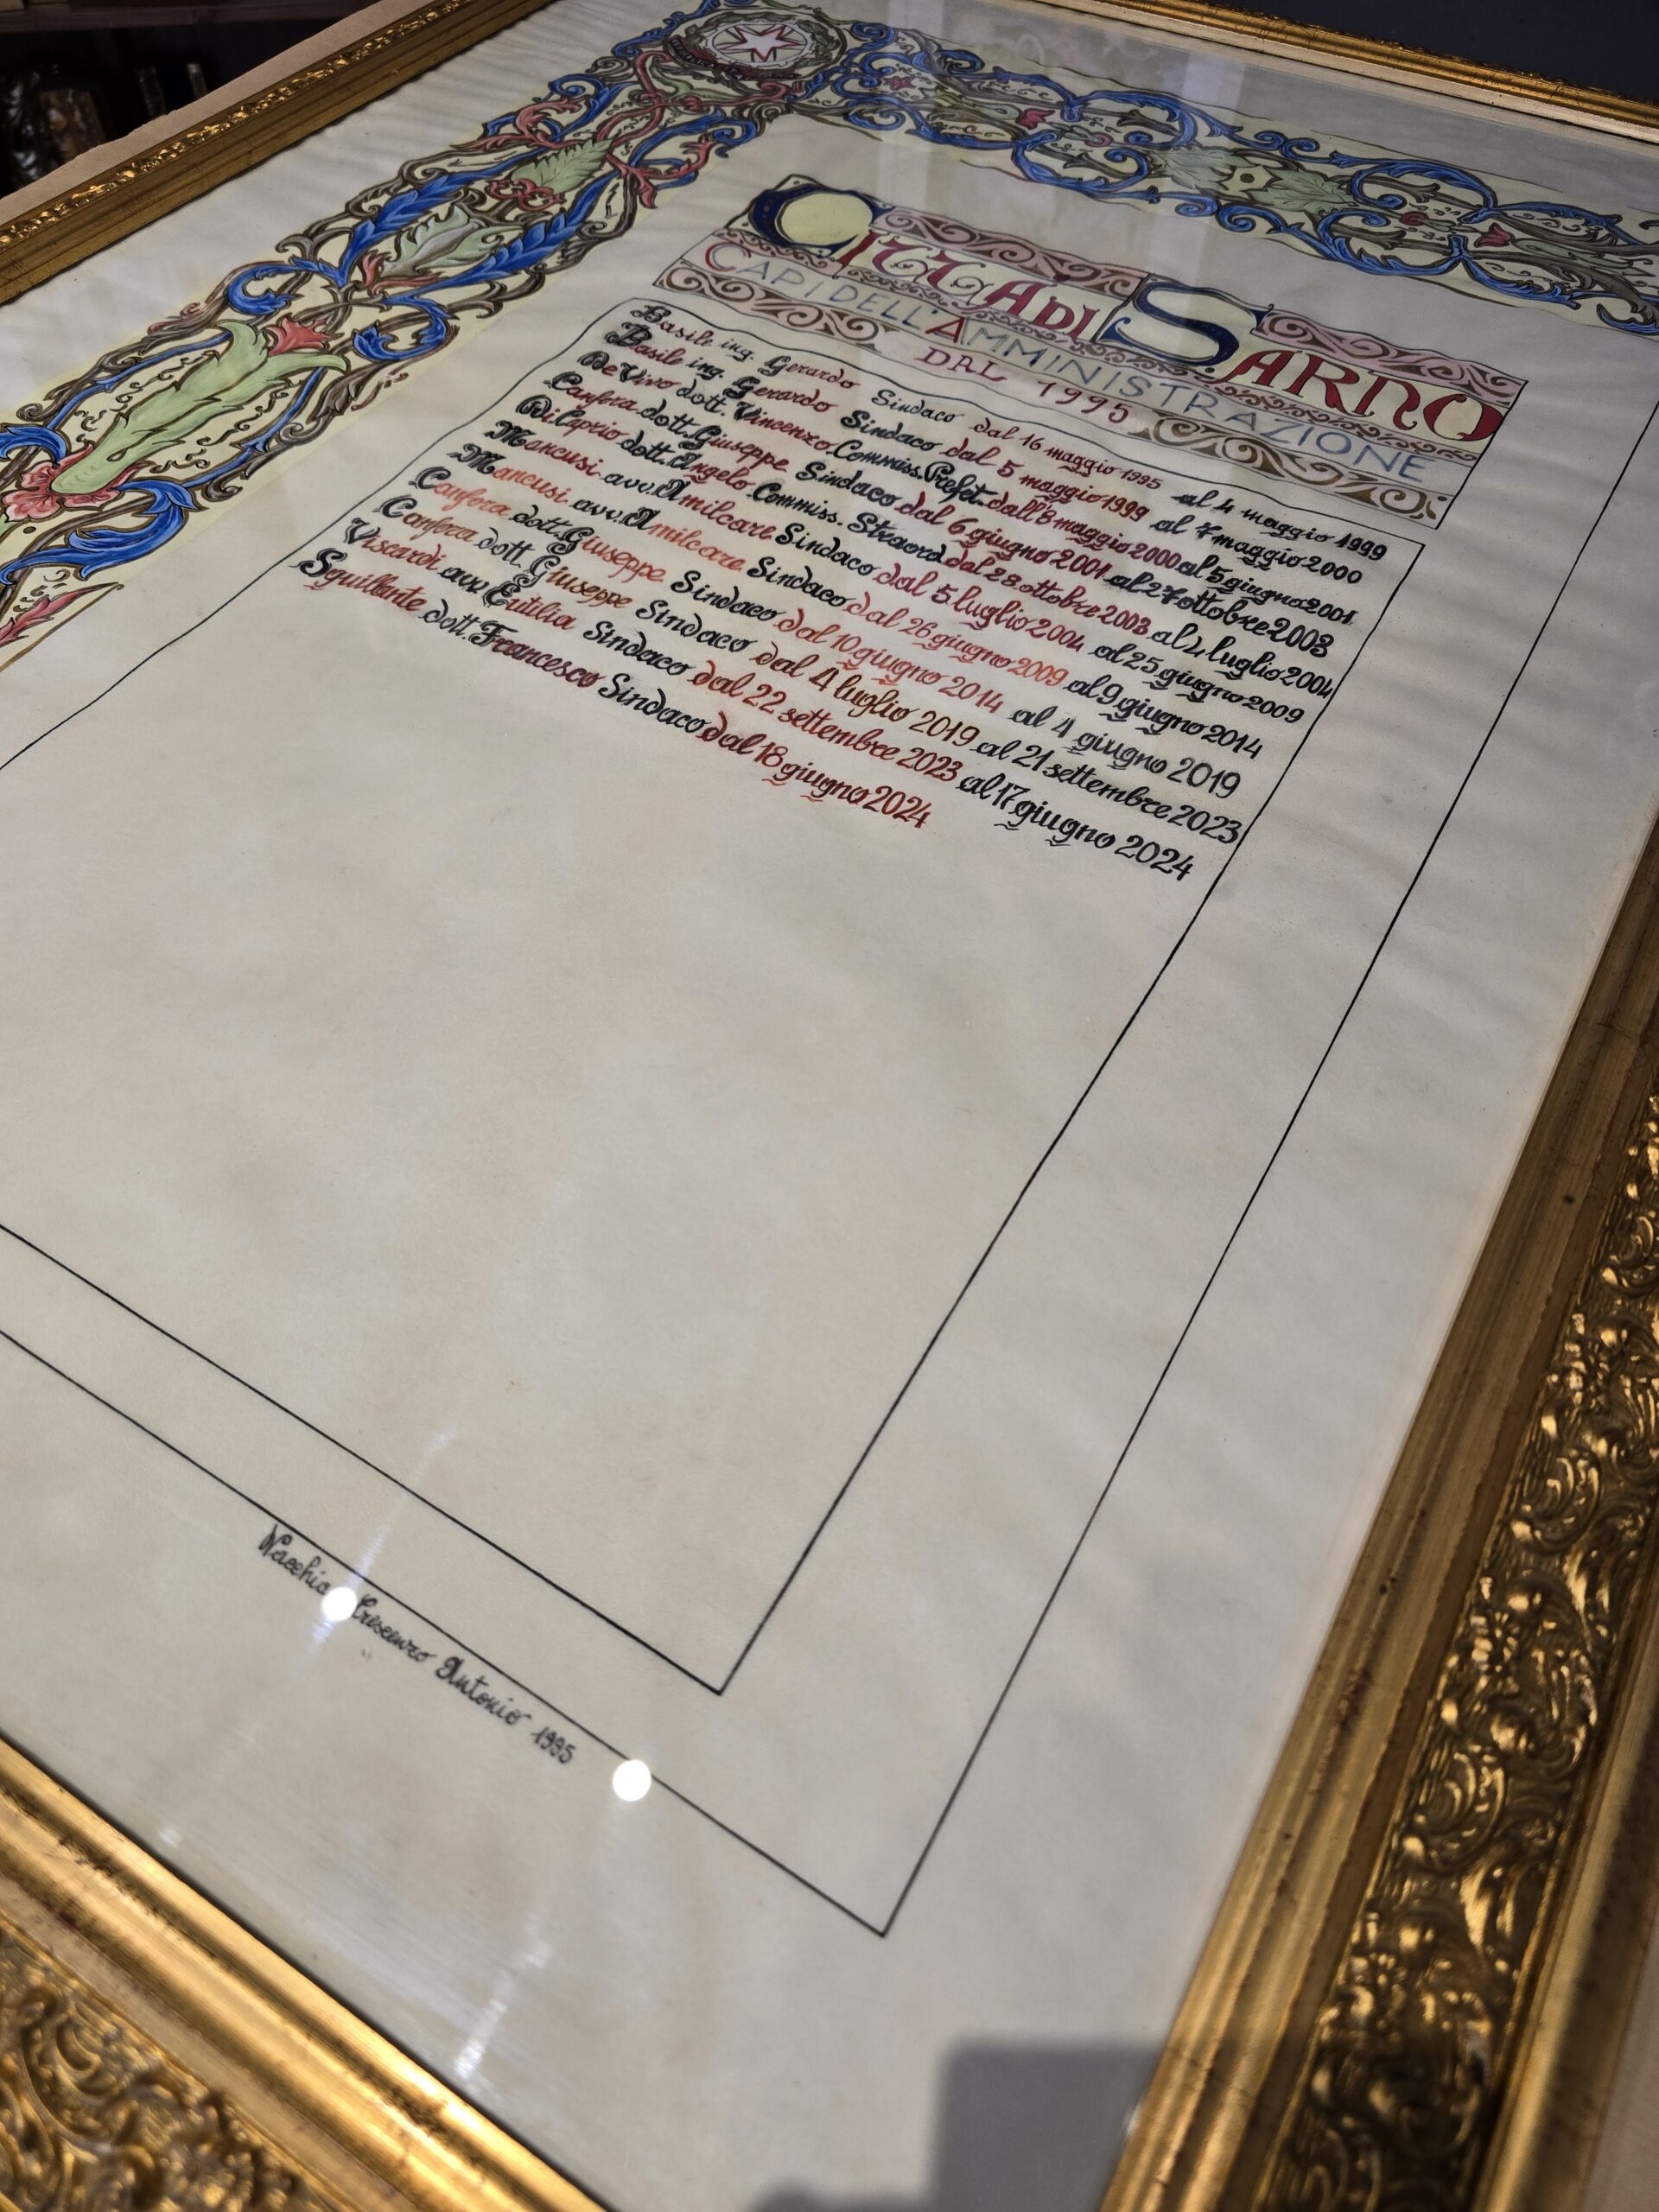 CITTÀ DI SARNO
CAPI DELL'AMMINISTRAZIONE
DAL 1995
Basile ing. Gerardo Sindaco dal 16 maggio 1995 al 4 maggio 1999
Basile ing. Gerardo Sindaco dal 5 maggio 1999 al 7 maggio 2000
De Vivo dott. Vincenzo Commiss. Prefet. dall'8 maggio 2000 al 5 giugno 2001
Canfora dott. Giuseppe Sindaco dal 6 giugno 2001 al 27 ottobre 2003
Di Caprio dott. Angelo Commiss. Straord. dal 28 ottobre 2003 al 4 luglio 2004
Mancusi avv. Amilcare Sindaco dal 5 luglio 2004 al 25 giugno 2009
Mancusi avv. Amilcare Sindaco dal 26 giugno 2009 al 9 giugno 2014
Canfora dott. Giuseppe Sindaco dal 10 giugno 2014 al 4 giugno 2019
Canfora dott. Giuseppe Sindaco dal 4 luglio 2019 al 21 settembre 2023
Viscardi avv. Eutilia Sindaco dal 22 settembre 2023 al 17 giugno 2024
Squillante dott. Francesco Sindaco dal 18 giugno 2024
Crescenzo Antonio 1995